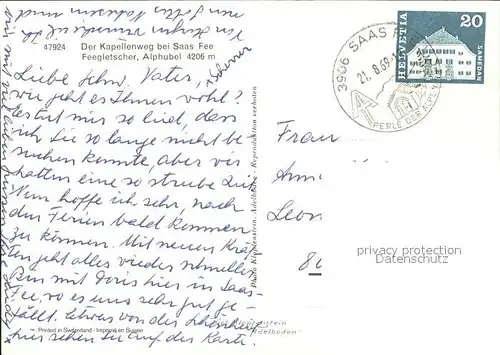 47924 Der Kapellenweg bei Saas Fee
Feegletscher, Alphubel 4206 m
Liebe Schw. Vater,
wie geht es Ihnen wohl?
Es tut mir so leid, dass
ich Sie so lange nicht be-
suchen konnte, aber wir
hatten eine so strube Zeit
Nun hoffe ich sehr, nach
den Ferien bald kommen
zu können. Mit neuen Kräf-
ten geht alles wieder schneller
Bin mit Doris hier in Saas-
Fee, wo es uns sehr gut ge-
fällt. Etwas von der Schönheit
hier sehen Sie auf der Karte.
Printed in Switzerland - Imprimé en Suisse
Photo Klopfenstein, Adelboden - Reproduktion verboten
3906 SAAS
21.8.69
PERLE DER ALPEN
HELVETIA 20
SAMEDAN
Frau
Leon
8
privacy protection
Datenschutz
Klopfenstein
Adelboden